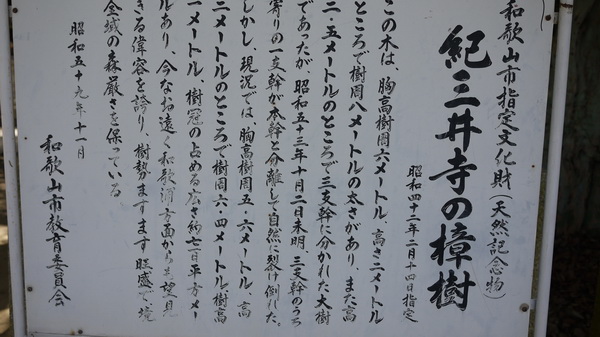 和歌山市指定文化財(天然記念物)
紀三井寺の樟樹
昭和四十二年二月十四日指定
この木は、胸高樹周六メートル、高さ二メートル
ところで樹周八メートルの太さがあり、また高
二・五メートルのところで三支幹に分かれた大樹
であったが、昭和五十三年十月二日未明、三支幹のうち
寄りの一支幹が本幹と分離して自然に裂け倒れた。
しかし、現況では、胸高樹周五・六メートル、高
二メートルのところで樹周六・四メートル、樹高
一メートル、樹冠の占める広さ約七百平方メー
ルあり、今なお遠く和歌浦方面からも望見
きる偉容を誇り、樹勢ますます旺盛で、境
全域の森厳さを保っている
昭和五十九年十一月
和歌山市教育委員会